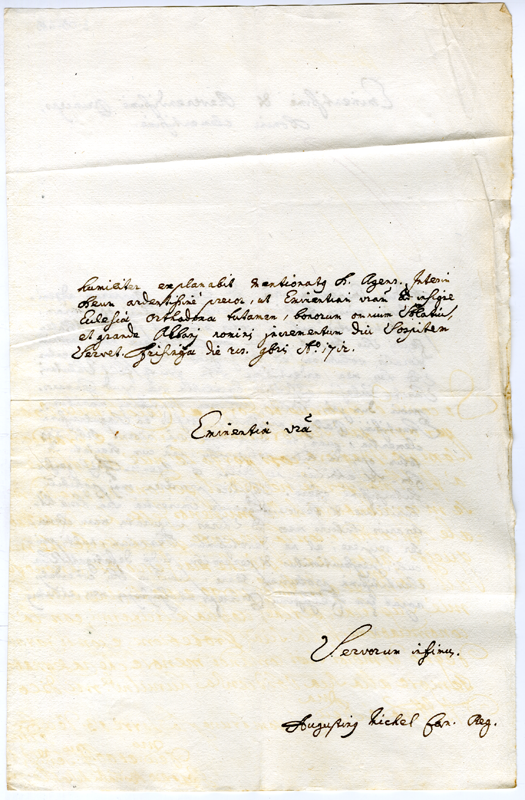 humiliter explanabit mentionatus D. Agens. Interim
Deum ardentissime precor, ut Eminentiam vram in insigne
Ecclesiæ Orthodoxa tutamen, bonorum omnium Solatium,
et grande Albani nominis incrementum diu Sospitem
Servet. Frisinga die 9bris Ao. 1712.
Eminentiæ vræ
Servorum infimus.
Augustinus Michel Can. Reg.